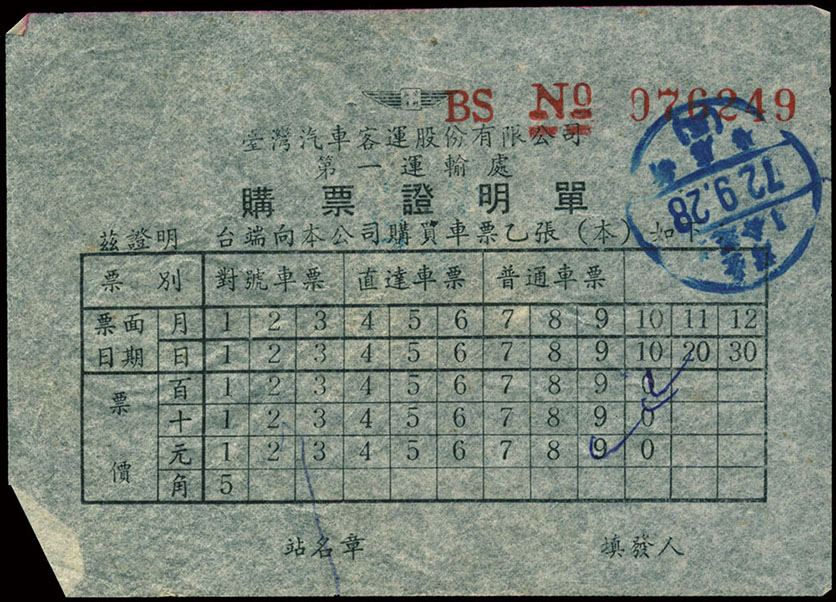 BS № 076249
臺灣汽車客運股份有限公司
第一運輸處
購票證明單
茲證明 台端向本公司購買車票乙張（本）如下
72.9.28
票別 對號車票 直達車票 普通車票
票面日期 月 1 2 3 4 5 6 7 8 9 10 11 12
日 1 2 3 4 5 6 7 8 9 10 20 30
票價 百 1 2 3 4 5 6 7 8 9 0
十 1 2 3 4 5 6 7 8 9 0
元 1 2 3 4 5 6 7 8 9 0
角 5
站名章 填發人